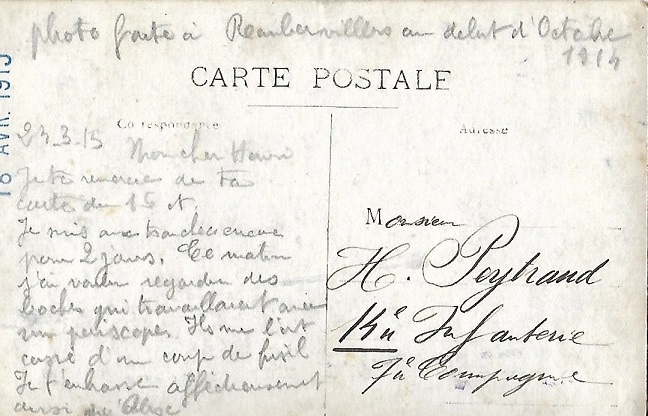 photo faite à Rambervillers au debut d'Octobre
1914
CARTE POSTALE
Correspondance
Adresse
18 AVR. 1915
23.3.15
Mon cher Henri
Je te remercie de ta
carte du
Je suis aux tranchees encore
pour 2 jours. Ce matin
j'ai voulu regarder des
boches qui travaillaient avec
un periscope. Ils me l'ont
cassé d'un coup de fusil
Je t'embrasse affectueusement
ainsi que
Monsieur
H. Peytraud
Infanterie
7e Compagnie